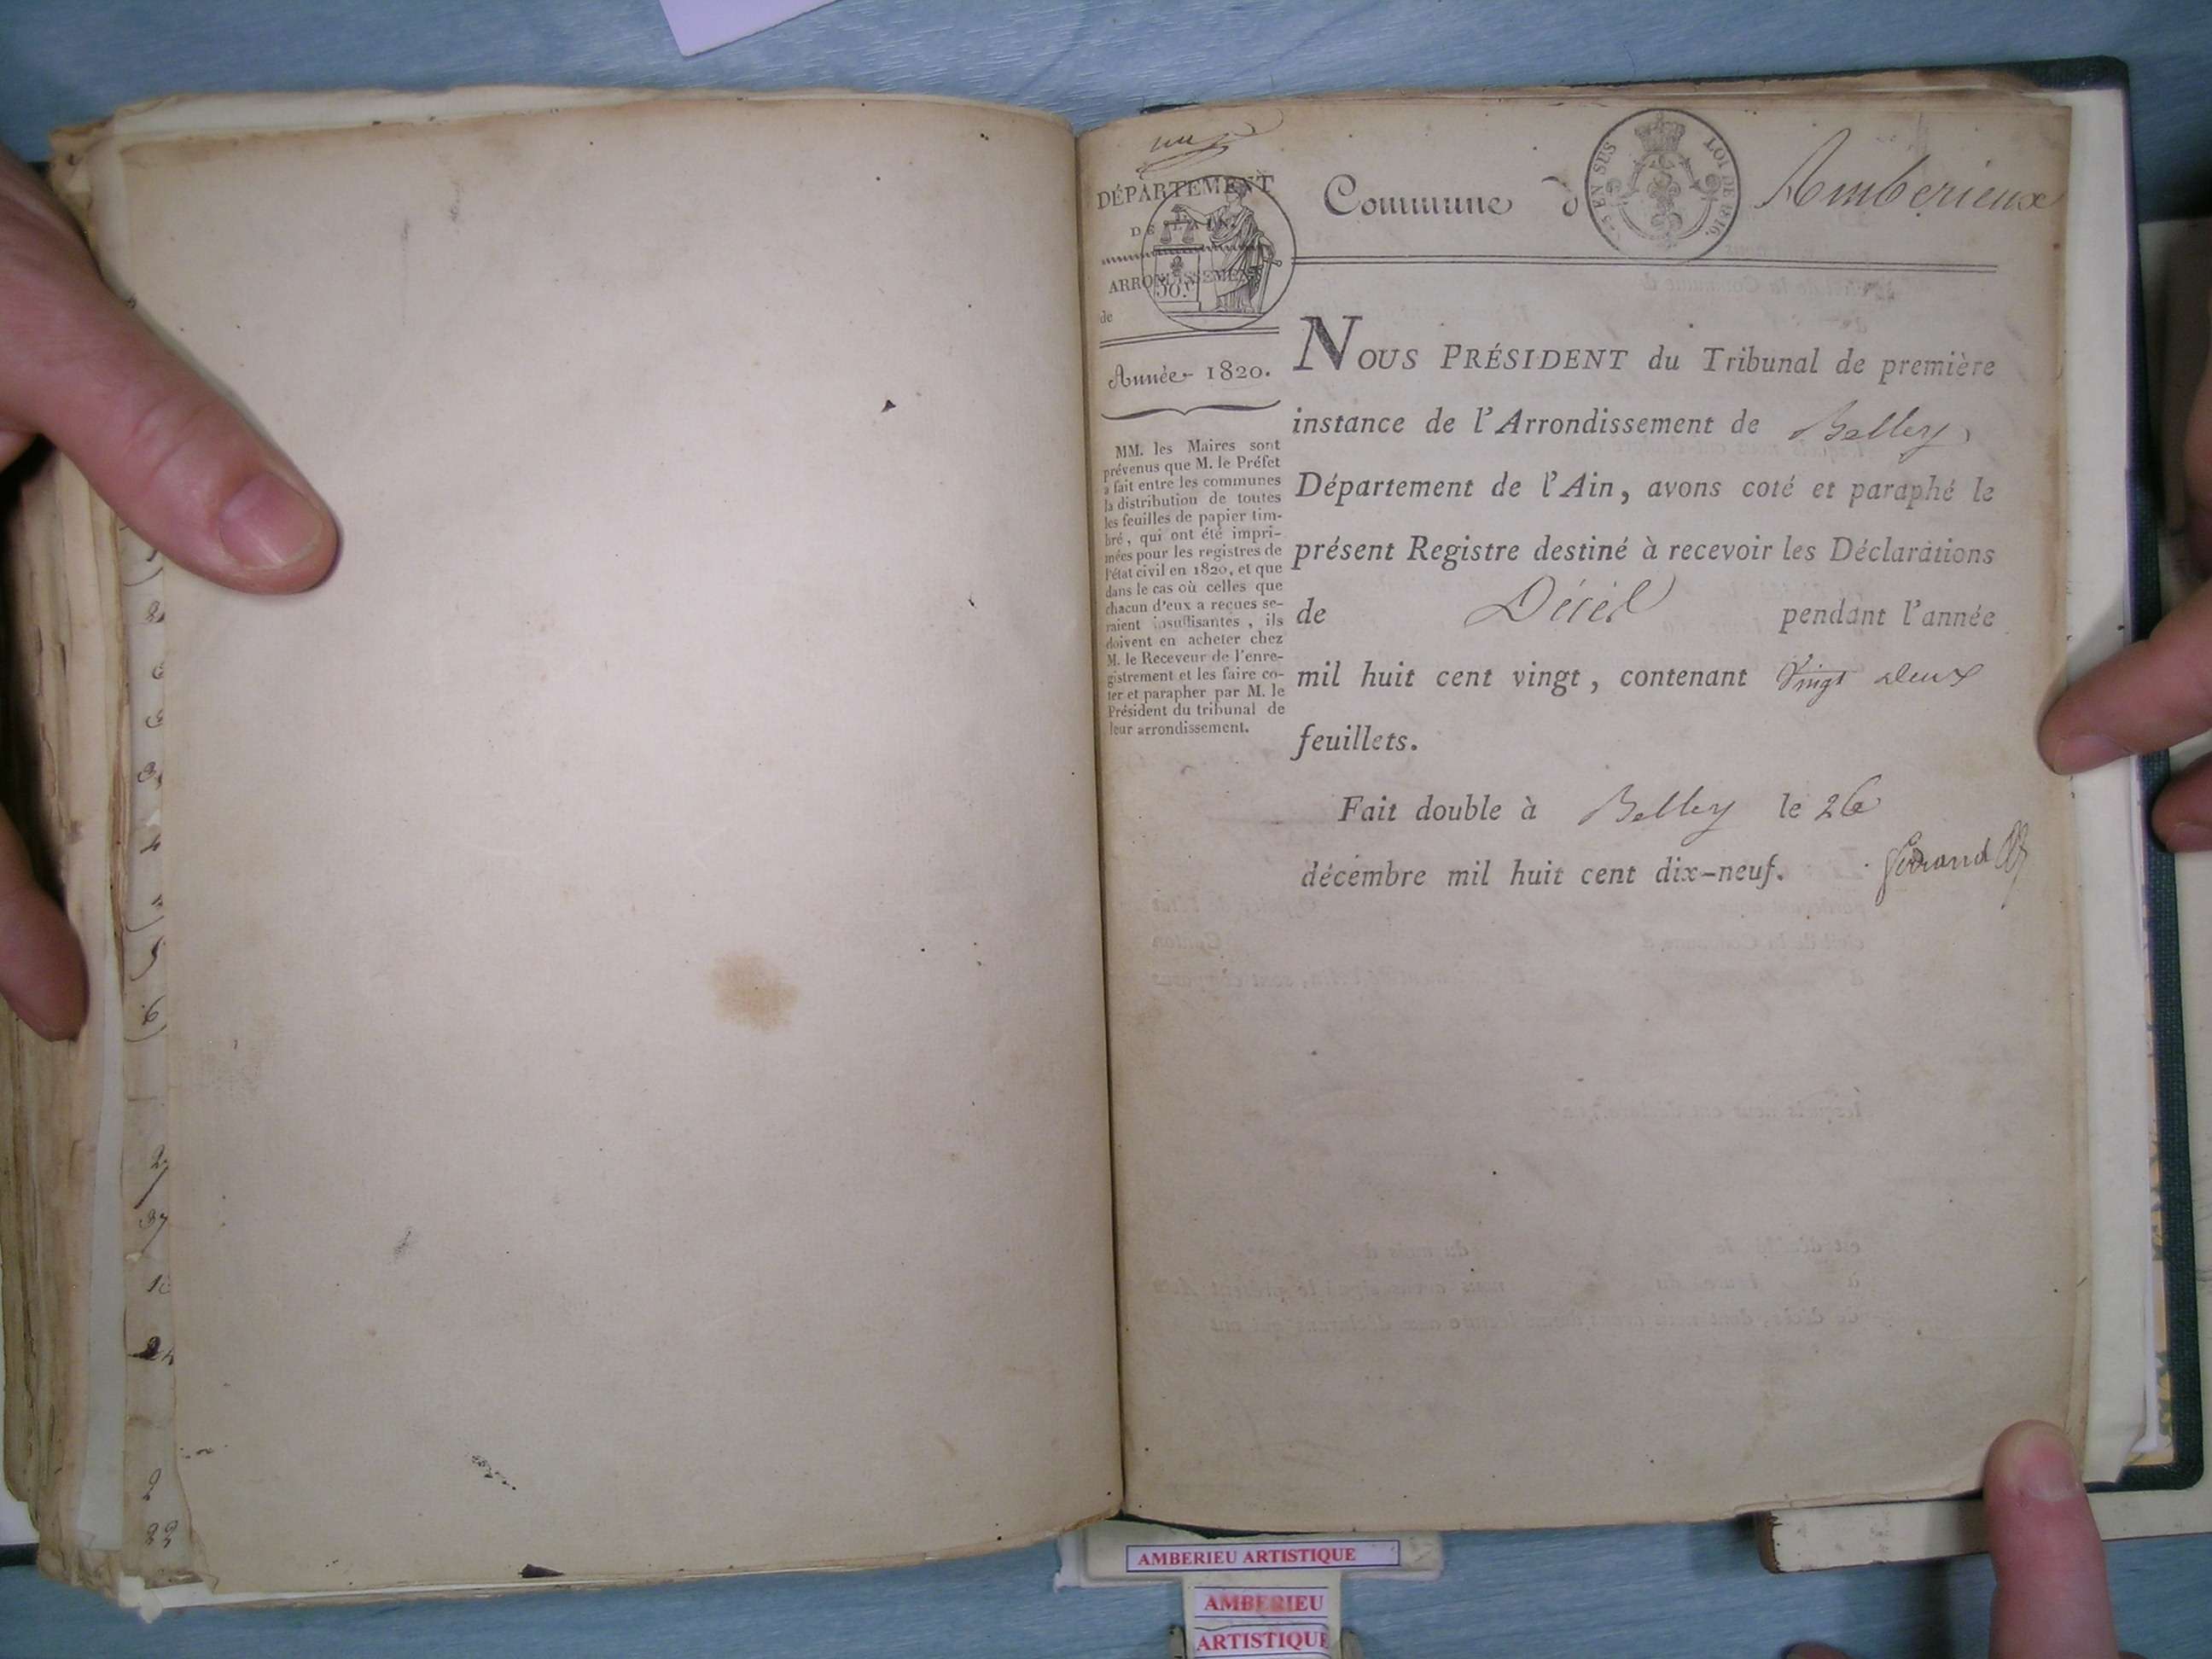 DÉPARTEMENT
DE L'AIN.
ARRONDISSEMENT
de
50.c
Année 1820.
MM. les Maires sont
prévenus que M. le Préfet
a fait entre les communes
la distribution de toutes
les feuilles de papier tim-
bré, qui ont été impri-
mées pour les registres de
l'état civil en 1820, et que
dans le cas où celles que
chacun d'eux a reçues se-
raient insuffisantes, ils
doivent en acheter chez
M. le Receveur de l'enre-
gistrement et les faire co-
ter et parapher par M. le
Président du tribunal de
leur arrondissement.
Commune d Amberieux
EN SUS LOI DE 1816.
NOUS PRÉSIDENT du Tribunal de première
instance de l'Arrondissement de Belley
Département de l'Ain, avons coté et paraphé le
présent Registre destiné à recevoir les Déclarations
de Décès pendant l'année
mil huit cent vingt, contenant Vingt deux
feuillets.
Fait double à Belley le 26
décembre mil huit cent dix-neuf.
AMBERIEU ARTISTIQUE
AMBERIEU
ARTISTIQUE